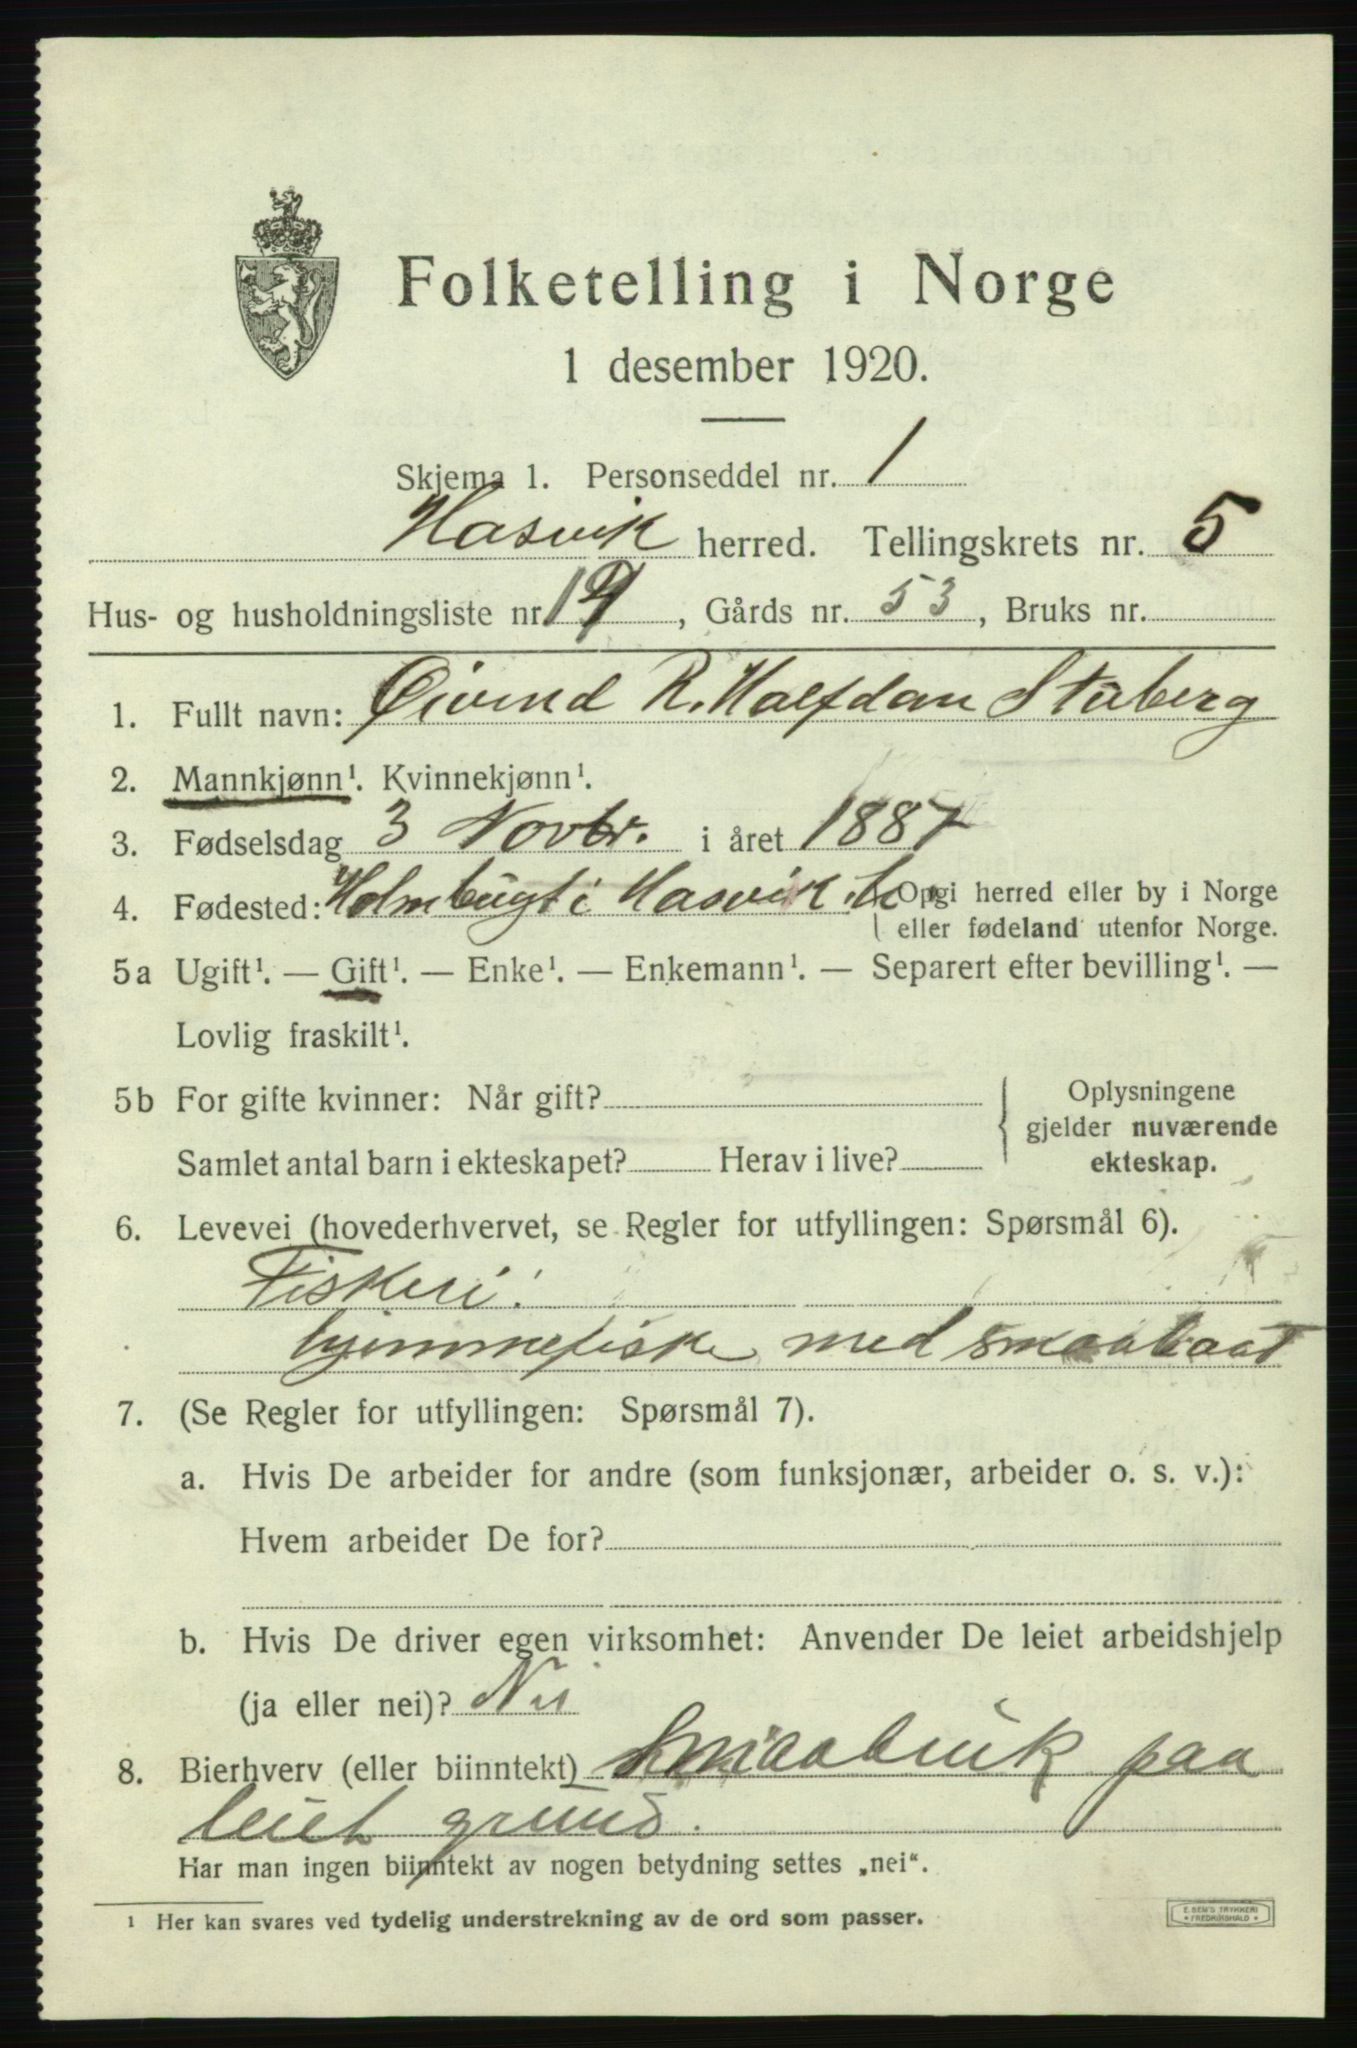 Folketelling i Norge
1 desember 1920.
Skjema 1. Personseddel nr. 1
Hasvik herred. Tellingskrets nr. 5
Hus- og husholdningsliste nr. 19, Gårds nr. 53, Bruks nr.
1. Fullt navn: Øivind R. Halfdan Staberg
2. Mannkjønn¹. Kvinnekjønn¹.
3. Fødselsdag 3 Novbr. i året 1887
4. Fødested: Holmbugt i Hasvik h. Opgi herred eller by i Norge
eller fødeland utenfor Norge.
5a Ugift¹. — Gift¹. — Enke¹. — Enkemann¹. — Separert efter bevilling¹. —
Lovlig fraskilt¹.
5b For gifte kvinner: Når gift?
Samlet antal barn i ekteskapet? Herav i live?
Oplysningene
gjelder nuværende
ekteskap.
6. Levevei (hovederhvervet, se Regler for utfyllingen: Spørsmål 6).
Fiskeri:
hjemmefiske med smaabaat
7. (Se Regler for utfyllingen: Spørsmål 7).
a. Hvis De arbeider for andre (som funksjonær, arbeider o. s. v.):
Hvem arbeider De for?
b. Hvis De driver egen virksomhet: Anvender De leiet arbeidshjelp
(ja eller nei)? Nei
8. Bierhverv (eller biinntekt) Smaabruk paa
leiet grund.
Har man ingen biinntekt av nogen betydning settes „nei“.
¹ Her kan svares ved tydelig understrekning av de ord som passer.
E. SEM'S TRYKKERI
★ FREDRIKSHALD ★